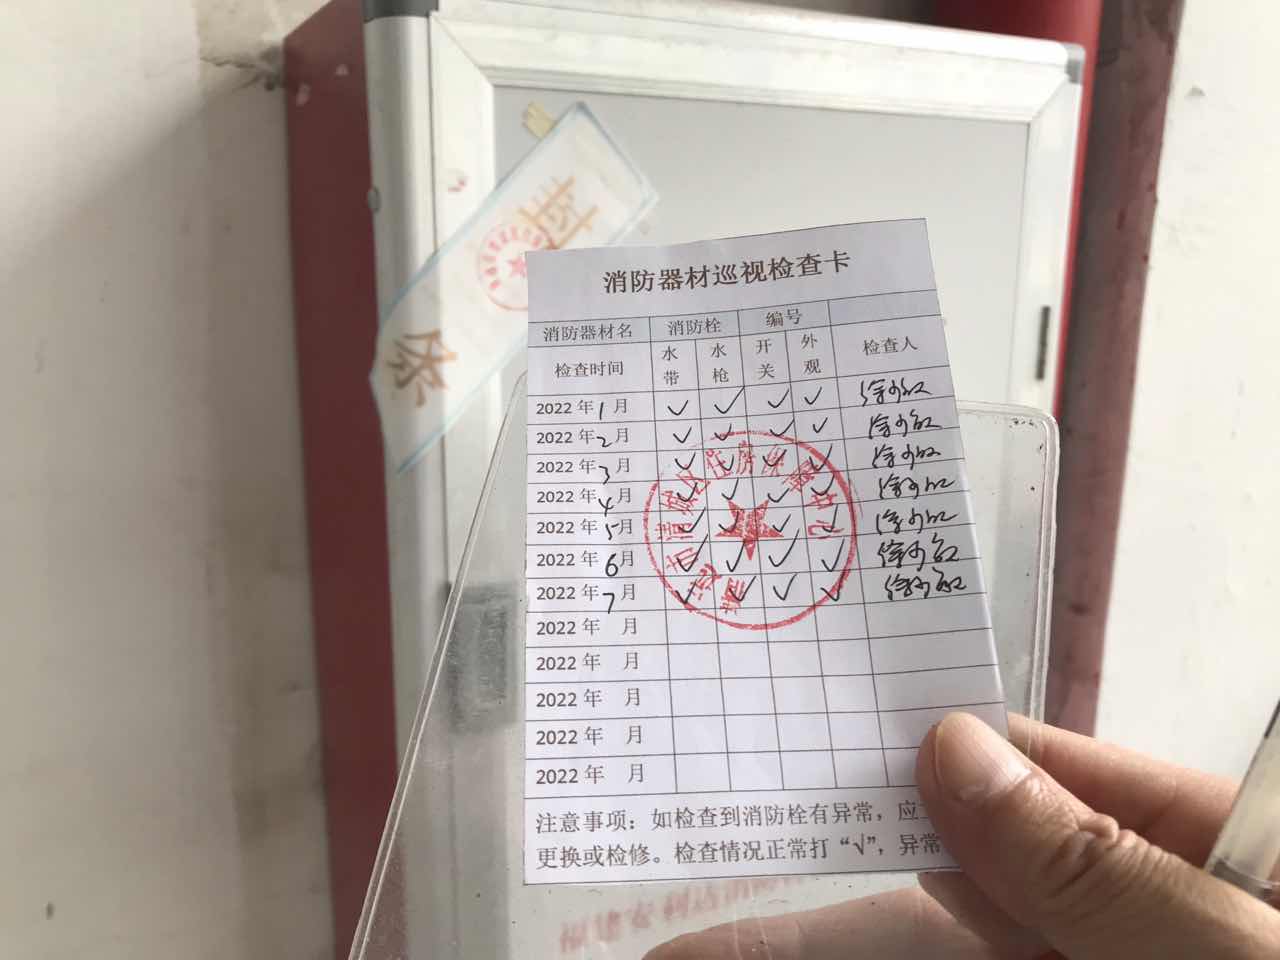 封
条
消防器材巡视检查卡
消防器材名 消防栓 编号
检查时间 水带 水枪 开关 外观 检查人
2022年1月 ✓ ✓ ✓ ✓
2022年2月 ✓ ✓ ✓ ✓
2022年3月 ✓ ✓ ✓ ✓
2022年4月 ✓ ✓ ✓ ✓
2022年5月 ✓ ✓ ✓ ✓
2022年6月 ✓ ✓ ✓ ✓
2022年7月 ✓ ✓ ✓ ✓
2022年 月
2022年 月
2022年 月
2022年 月
2022年 月
市清城区住房保障中心
注意事项：如检查到消防栓有异常，应
更换或检修。检查情况正常打“√”，异常